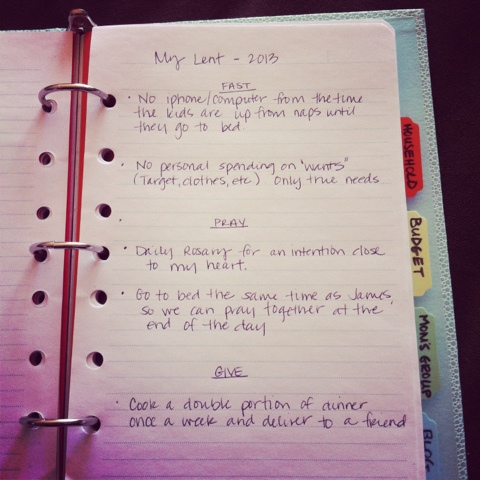 My Lent - 2013
FAST
• No iphone/computer from the time
the kids are up from naps until
they go to bed.
• No personal spending on "wants"
(Target, clothes, etc) Only true needs
•
PRAY
• Daily Rosary for an intention close
to my heart.
• Go to bed the same time as James,
so we can pray together at the
end of the day
GIVE
• Cook a double portion of dinner
once a week and deliver to a friend
HOUSEHOLD
BUDGET
MOM'S GROUP
BLOG